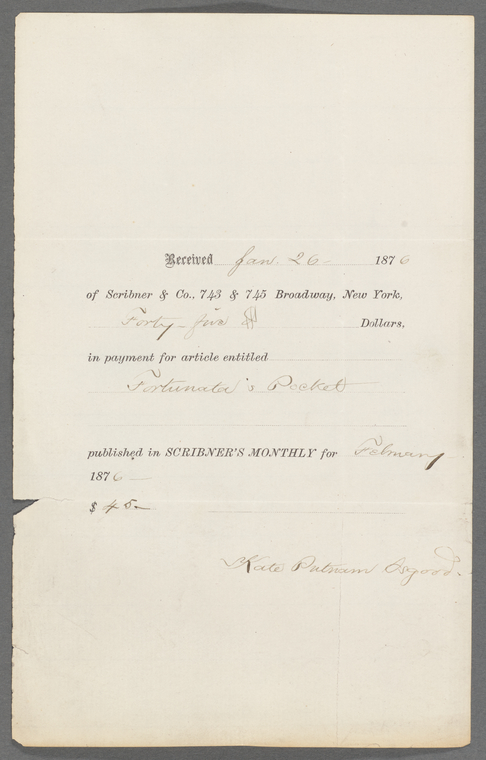 Received Jan. 26 - 1876
of Scribner & Co., 743 & 745 Broadway, New York,
Forty-five $ Dollars,
in payment for article entitled
Fortunata's Pocket
published in SCRIBNER'S MONTHLY for February
1876 -
$ 45 -
Kate Putnam Osgood.